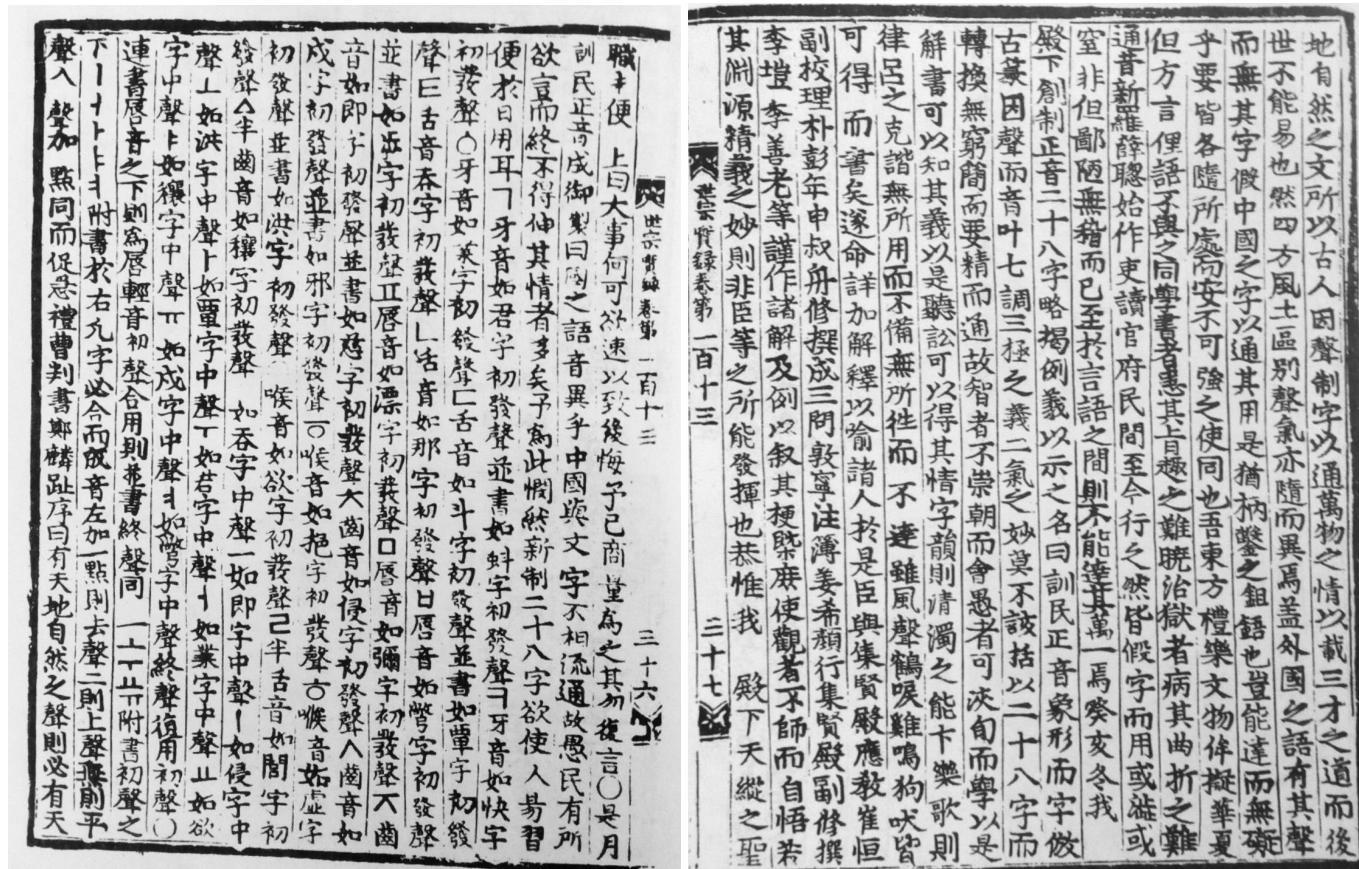 世宗實錄卷第一百十三 三十六
職事便 上曰大事何可欲速以致後悔予已商量爲之其勿復言○是月
訓民正音成御製曰國之語音異乎中國與文字不相流通故愚民有所
欲言而終不得伸其情者多矣予爲此憫然新制二十八字欲使人易習
便於日用耳ㄱ牙音如君字初發聲並書如蚪字初發聲ㅋ牙音如快字
初發聲ㆁ牙音如業字初發聲ㄷ舌音如斗字初發聲並書如覃字初發
聲ㅌ舌音呑字初發聲ㄴ舌音如那字初發聲ㅂ唇音如彆字初發聲
並書如步字初發聲ㅍ唇音如漂字初發聲ㅁ唇音如彌字初發聲ㅈ齒
音如即字初發聲並書如慈字初發聲ㅊ齒音如侵字初發聲ㅅ齒音如
戌字初發聲並書如邪字初發聲ㆆ喉音如挹字初發聲ㅎ喉音如虛字
初發聲並書如洪字初發聲 喉音如欲字初發聲ㄹ半舌音如閭字初
發聲ㅿ半齒音如穰字初發聲 如呑字中聲ㅡ如即字中聲ㅣ如侵字中
聲ㅗ如洪字中聲ㅏ如覃字中聲ㅜ如君字中聲ㅓ如業字中聲ㅛ如欲
字中聲ㅑ如穰字中聲ㅠ如戌字中聲ㅕ如彆字中聲終聲復用初聲○
連書唇音之下則爲唇輕音初聲合用則並書終聲同 ㅡㅗㅜㅛㅠ附書初聲之
下ㅣㅓㅏㅑㅕ附書於右凡字必合而成音左加一點則去聲二則上聲無則平
聲入聲加點同而促急禮曹判書鄭麟趾序曰有天地自然之聲則必有天
地自然之文所以古人因聲制字以通萬物之情以載三才之道而後
世不能易也然四方風土區別聲氣亦隨而異焉蓋外國之語有其聲
而無其字假中國之字以通其用是猶枘鑿之鉏鋙也豈能達而無礙
乎要皆各隨所處而安不可強之使同也吾東方禮樂文物侔擬華夏
但方言俚語不與之同學書者患其旨趣之難曉治獄者病其曲折之難
通昔新羅薛聰始作吏讀官府民間至今行之然皆假字而用或澁或
窒非但鄙陋無稽而已至於言語之間則不能達其萬一焉癸亥冬我
殿下創制正音二十八字略揭例義以示之名曰訓民正音象形而字倣
古篆因聲而音叶七調三極之義二氣之妙莫不該括以二十八字而
轉換無窮簡而要精而通故智者不崇朝而會愚者可浹旬而學以是
解書可以知其義以是聽訟可以得其情字韻則淸濁之能卞樂歌則
律呂之克諧無所用而不備無所往而不達雖風聲鶴唳雞鳴狗吠皆
可得而書矣遂命詳加解釋以喩諸人於是臣與集賢殿應敎崔恒
副校理朴彭年申叔舟修撰成三問敦寧注簿姜希顔行集賢殿副修撰
李塏李善老等謹作諸解及例以敍其梗槩庶使觀者不師而自悟若
其淵源精義之妙則非臣等之所能發揮也恭惟我 殿下天縱之聖
世宗實錄卷第一百十三 三十七